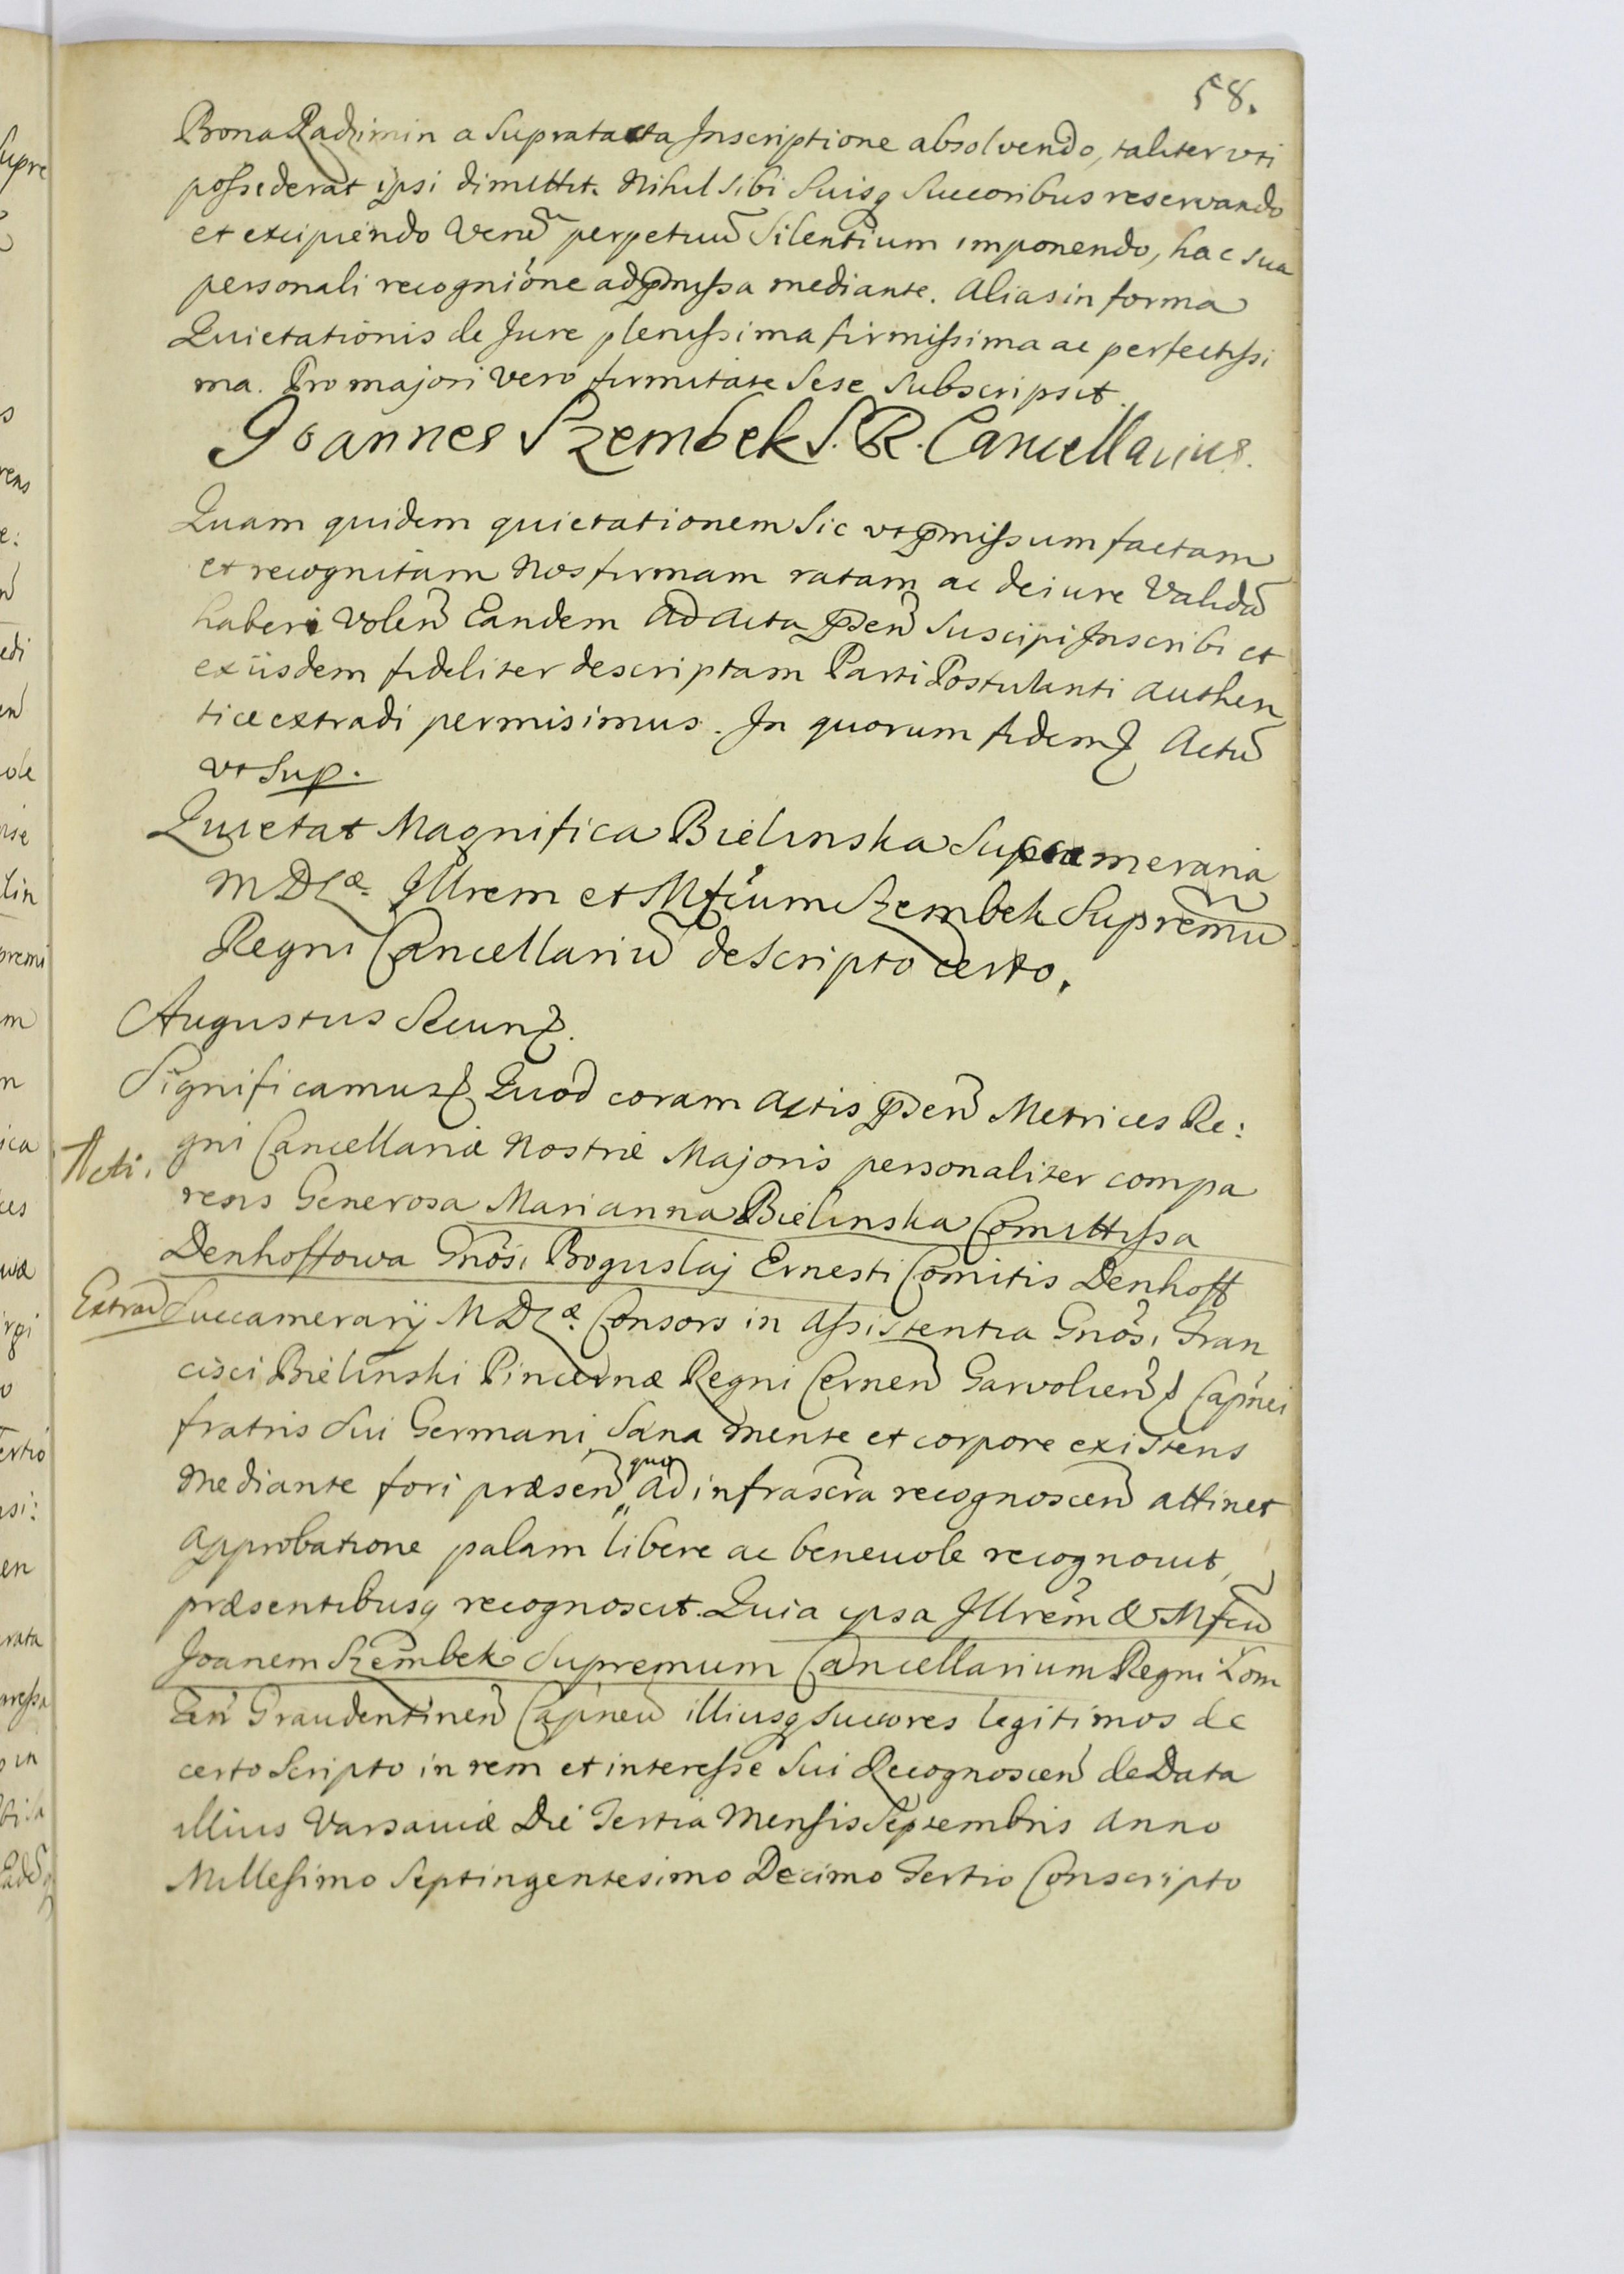 58.
Bona Radzimin a Supratacta Inscriptione absolvendo, taliter uti
possederat ipsi dimittit. Nihil sibi Suisq Succoribus reservando
et excipiendo Verũ perpetuũ Silentium imponendo, hac sua
personali recognióne ad pmissa mediante. Alias in forma
Quietationis de Jure plenissima firmissima ac perfectissi
ma. Pro majori vero firmitate Sese Subscripsit.
Joannes Szembek S. R. Cancellarius.
Quam quidem quietationem Sic vt pmissum factam
et recognitam Nos firmam ratam ac de iure Validã
haberi Volen Eandem Ad Acta pñsen Suscipi Inscribi et
ex iisdem fideliter descriptam Parti Postulanti Authen
tice extradi permisimus. In quorum fidem Actũ
vt Sup.
Quietat Magnifica Bielinska Succameraria
M D L æ Illrem et Mfcum Szembek Supremũ
Regni Cancellariũ de Scripto certo.
Augustus Secun
Significamus Quod coram Actis pñsen Metrices Re:
Acti. gni Cancellariæ Nostræ Majoris personaliter compa
rens Generosa Marianna Bielinska Comittissa
Denhoffowa Gnosi Boguslaj Ernesti Comitis Denhoff
Extrad Succamerarij M D L æ Consors in Assistentia Gnosi Fran
cisci Bielinski Pincernæ Regni Cernen Garvolien Capnei
fratris Sui Germani, Sana mente et corpore existens
Mediante fori præsen quo ad infrascra recognoscen attinet
Approbatione palam libere ac benevole recognovit,
præsentibusq recognoscit. Quia ipsa Illrem & Mfcũ
Joanem Szembek Supremum Cancellarium Regni Lom
zen Graudentinen Capneũ illiusq Succores legitimos de
certo Scripto in rem et interesse Sui Recognoscen de Data
illius Varsaviæ Die Tertia Mensis Septembris Anno
Millesimo Septingentesimo Decimo Tertio Conscripto